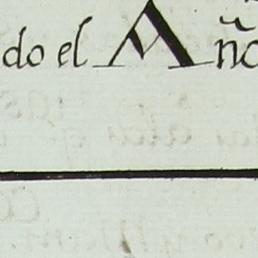 do el Año